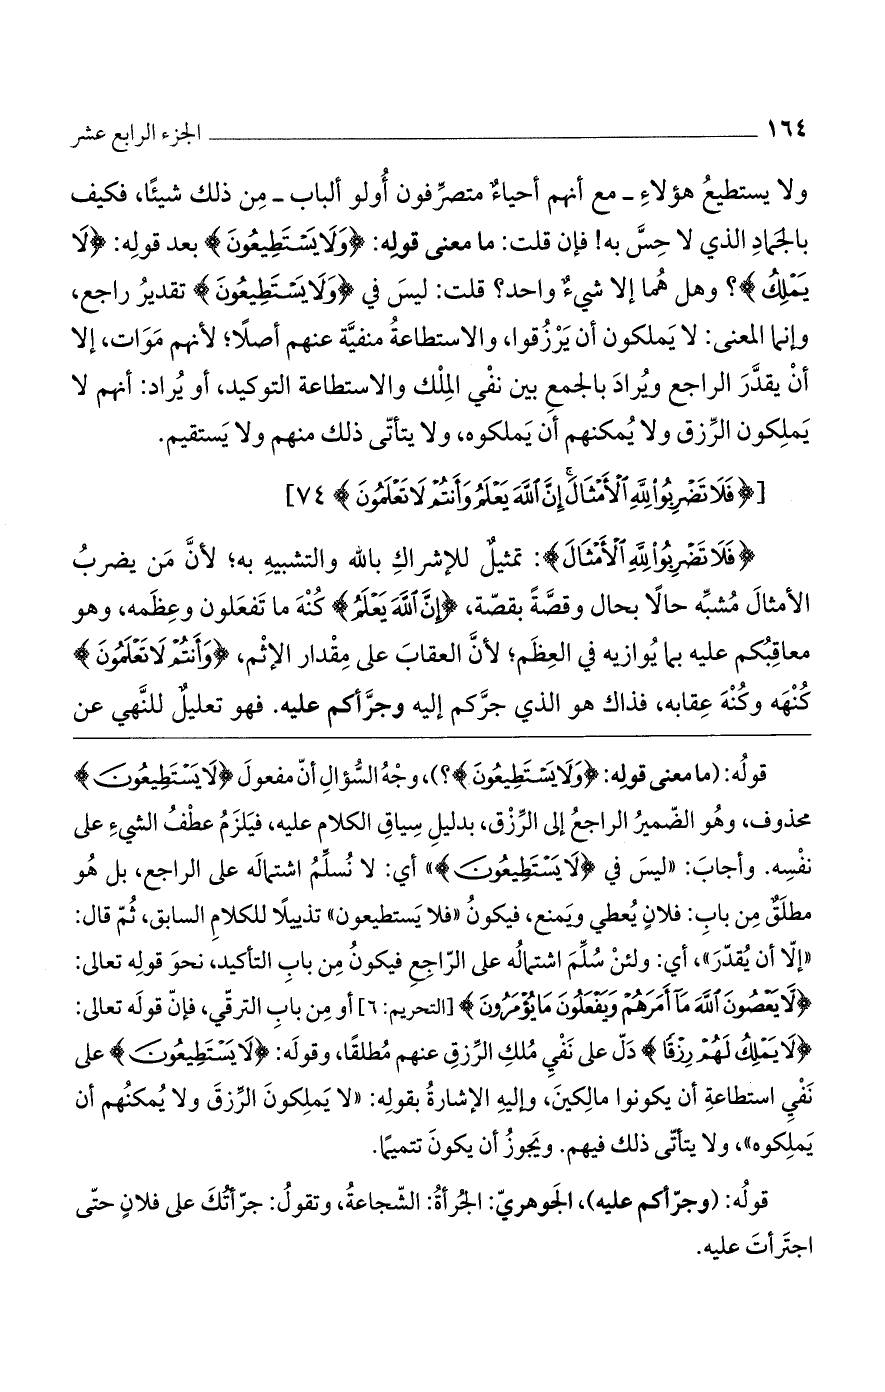 ١٦٤ ــــــــــــ الجزء الرابع عشر
ولا يستطيعُ هؤلاءِ ـ مع أنهم أحياءٌ متصرِّفون أُولو ألباب ـ مِن ذلك شيئًا، فكيف
بالجَمادِ الذي لا حِسَّ به! فإن قلت: ما معنى قولِه: ﴿وَلَا يَسْتَطِيعُونَ﴾ بعد قولِه: ﴿لَا
يَمْلِكُ﴾؟ وهل هُما إلا شيءٌ واحد؟ قلت: ليسَ في ﴿وَلَا يَسْتَطِيعُونَ﴾ تقديرُ راجع،
وإنما المعنى: لا يَملكون أن يَرْزُقوا، والاستطاعةُ منفيَّة عنهم أصلًا؛ لأنهم مَوَات، إلا
أنْ يقدَّرَ الراجع ويُرادَ بالجمعِ بين نفْي المِلْك والاستطاعة التوكيد، أو يُراد: أنهم لا
يَملِكون الرِّزق ولا يُمكنهم أن يَملكوه، ولا يتأتّى ذلك منهم ولا يَستقيم.
[﴿فَلَا تَضْرِبُوا۟ لِلَّهِ ٱلْأَمْثَالَ ۚ إِنَّ ٱللَّهَ يَعْلَمُ وَأَنتُمْ لَا تَعْلَمُونَ﴾ ٧٤]
﴿فَلَا تَضْرِبُوا۟ لِلَّهِ ٱلْأَمْثَالَ﴾: تمثيلٌ للإشراكِ بالله والتشبيهِ به؛ لأنَّ مَن يضربُ
الأمثالَ مُشبِّه حالًا بحال وقصَّةً بقصّة، ﴿إِنَّ ٱللَّهَ يَعْلَمُ﴾ كُنْهَ ما تَفعَلون وعِظَمه، وهو
معاقِبُكم عليه بما يُوازيه في العِظَم؛ لأنَّ العقابَ على مِقْدار الإثْم، ﴿وَأَنتُمْ لَا تَعْلَمُونَ﴾
كُنْهَه وكُنْهَ عِقابه، فذاك هو الذي جرَّكم إليه وجرَّأكم عليه. فهو تعليلٌ للنَّهي عن
قولُه: (ما معنى قولِه: ﴿وَلَا يَسْتَطِيعُونَ﴾؟)، وجْهُ السُّؤالِ أنّ مفعولَ ﴿لَا يَسْتَطِيعُونَ﴾
محذوف، وهُو الضّميرُ الراجعُ إلى الرِّزْق، بدليلِ سِياقِ الكلام عليه، فيَلزَمُ عطْفُ الشيءِ على
نفْسِه. وأجابَ: «ليسَ في ﴿لَا يَسْتَطِيعُونَ﴾» أي: لا نُسلِّمُ اشتمالَه على الراجع، بل هُو
مطلَقٌ مِن بابِ: فلانٍ يُعطي ويَمنع، فيكونُ «فلا يَستطيعون» تذييلًا للكلامِ السابق، ثُمّ قال:
«إلّا أن يُقدّرَ»، أي: ولئنْ سُلِّمَ اشتمالُه على الرّاجِعِ فيكونُ مِن بابِ التأكيد، نحوَ قولِه تعالى:
﴿لَا يَعْصُونَ ٱللَّهَ مَآ أَمَرَهُمْ وَيَفْعَلُونَ مَا يُؤْمَرُونَ﴾ [التحريم: ٦] أو مِن بابِ الترقّي، فإنّ قولَه تعالى:
﴿لَا يَمْلِكُ لَهُمْ رِزْقًا﴾ دَلّ على نَفْيِ مُلكِ الرِّزقِ عنهم مُطلقًا، وقولَه: ﴿لَا يَسْتَطِيعُونَ﴾ على
نَفْيِ استطاعةِ أن يكونوا مالِكينَ، وإليهِ الإشارةُ بقولِه: «لا يَملِكونَ الرِّزقَ ولا يُمكنُهم أن
يَملِكوه»، ولا يتأتّى ذلك فيهم. ويَجوزُ أن يكونَ تتميمًا.
قولُه: (وجرّأكم عليه)، الجَوهريّ: الجُرأةُ: الشّجاعةُ، وتقولُ: جرّأتُكَ على فلانٍ حتّى
اجتَرأتَ عليه.